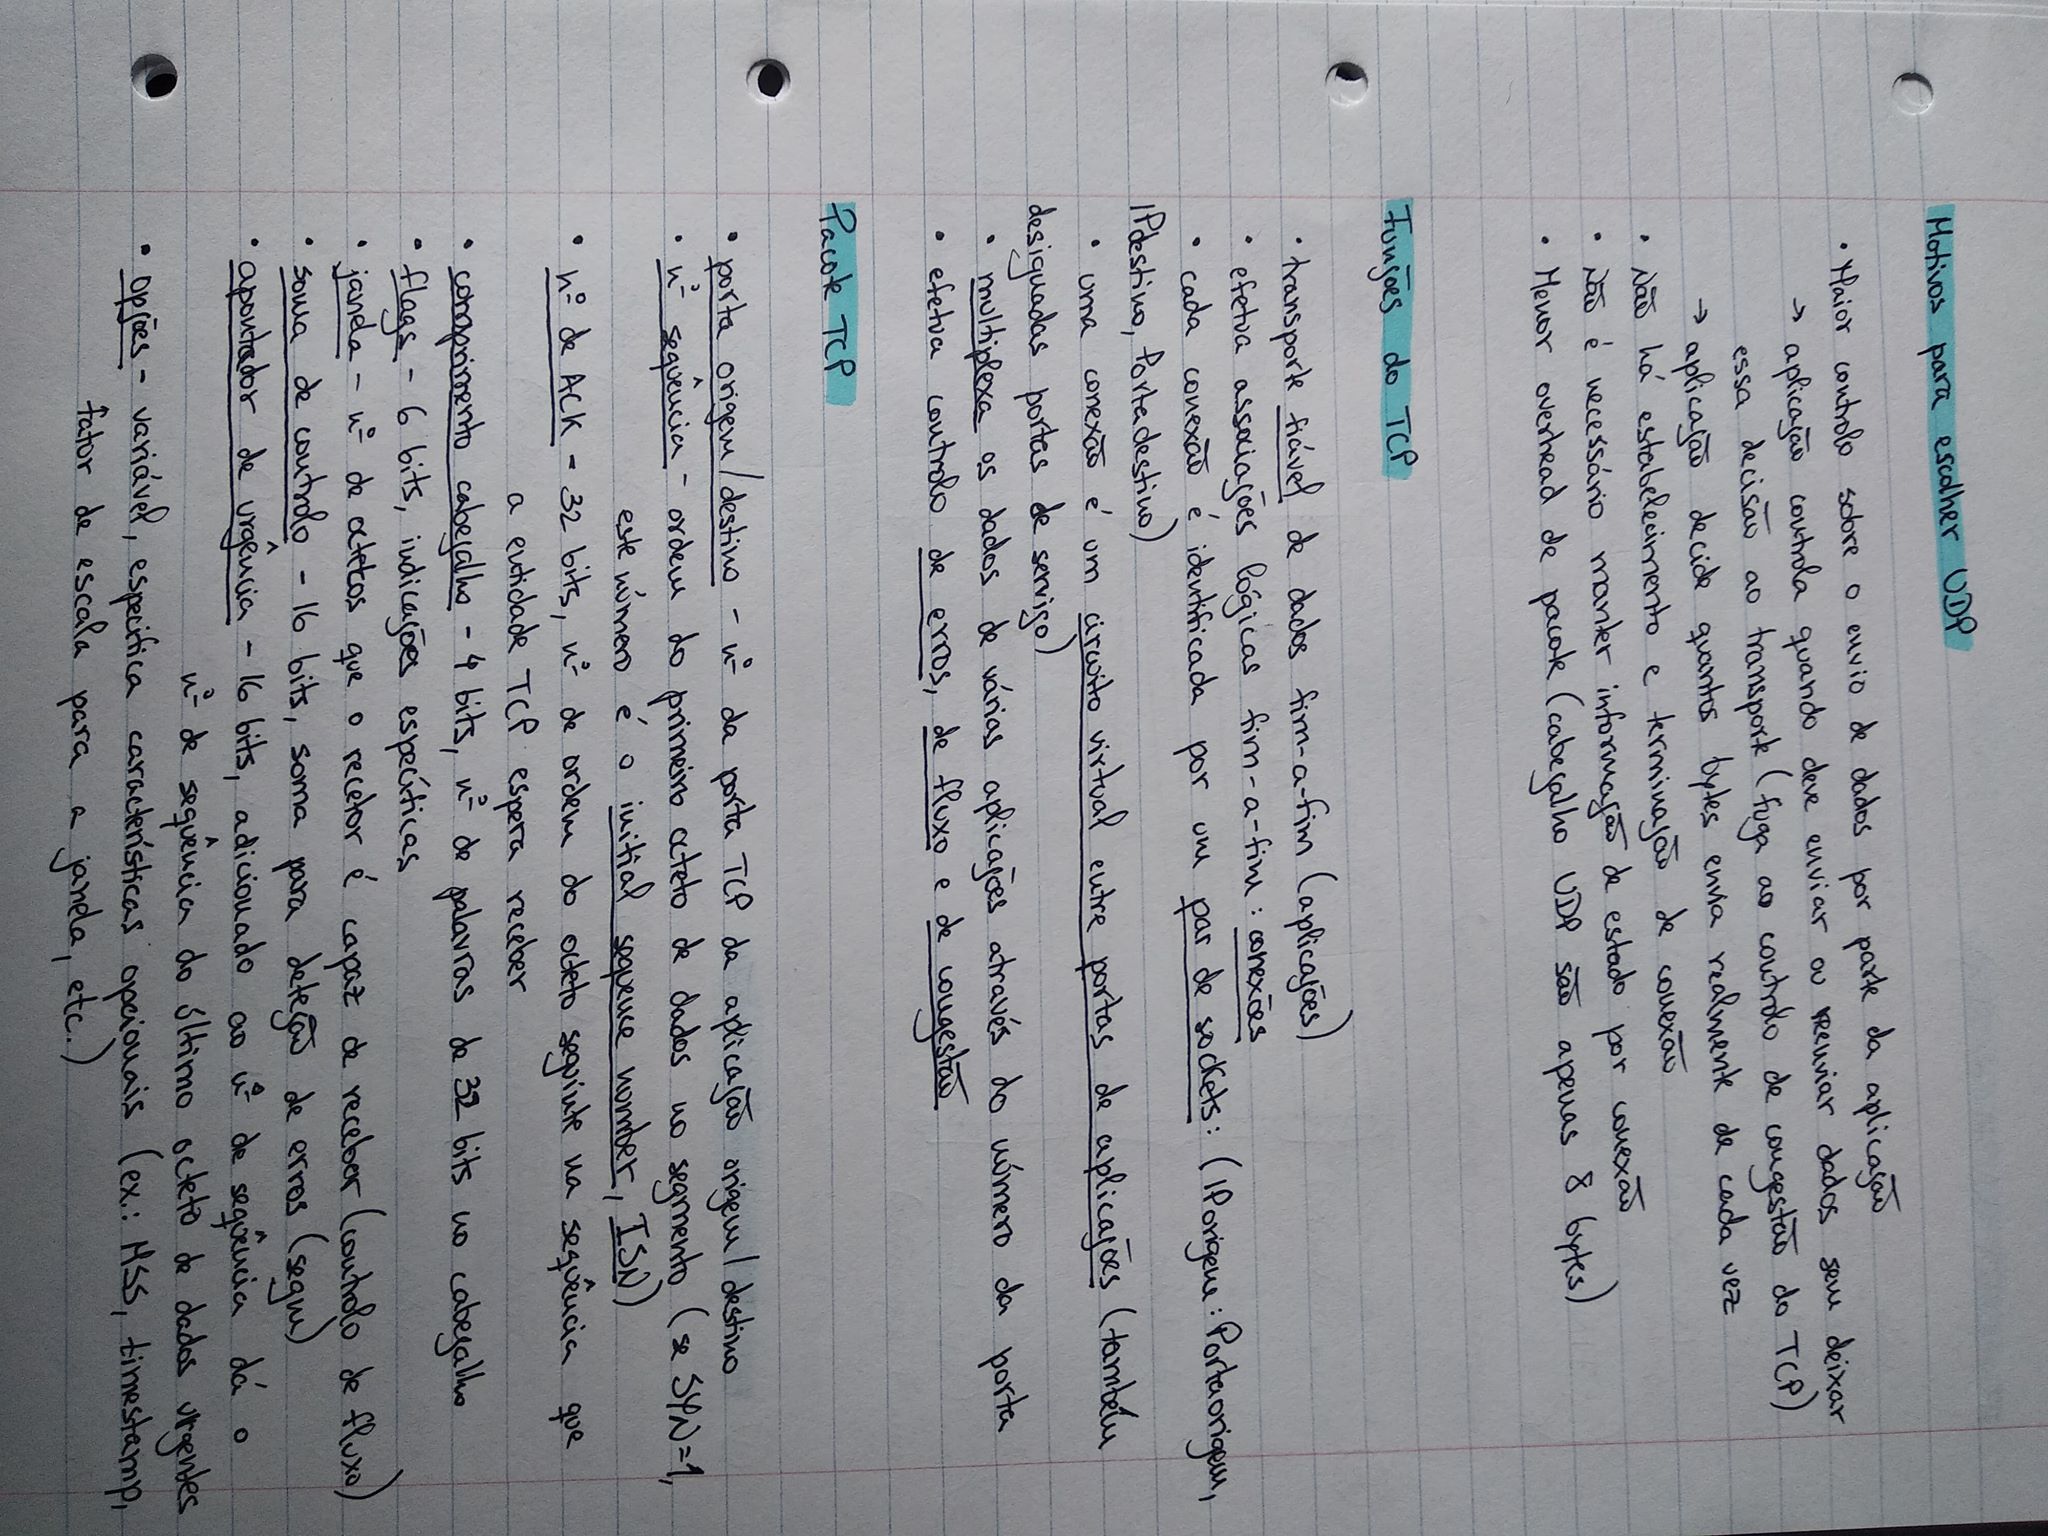 Motivos para escolher UDP
• Maior controlo sobre o envio de dados por parte da aplicação
→ aplicação controla quando deve enviar ou reenviar dados sem deixar
essa decisão ao transporte (fuga ao controlo de congestão do TCP)
→ aplicação decide quantos bytes envia realmente de cada vez
• Não há estabelecimento e terminação de conexão
• Não é necessário manter informação de estado por conexão
• Menor overhead de pacote (cabeçalho UDP são apenas 8 bytes)
Funções do TCP
• transporte fiável de dados fim-a-fim (aplicações)
• efetua associações lógicas fim-a-fim: conexões
• cada conexão é identificada por um par de sockets: (IPorigem: Portaorigem,
IPdestino, Portadestino)
• uma conexão é um circuito virtual entre portas de aplicações (também
designadas portas de serviço)
• multiplexa os dados de várias aplicações através do número da porta
• efetua controlo de erros, de fluxo e de congestão
Pacote TCP
• porta origem/destino - nº da porta TCP da aplicação origem/destino
• nº sequência - ordem do primeiro octeto de dados no segmento (se SYN=1,
este número é o initial sequence number, ISN)
• nº de ACK - 32 bits, nº de ordem do octeto seguinte na sequência que
a entidade TCP espera receber
• comprimento cabeçalho - 4 bits, nº de palavras de 32 bits no cabeçalho
• flags - 6 bits, indicações específicas
• janela - nº de octetos que o recetor é capaz de receber (controlo de fluxo)
• soma de controlo - 16 bits, soma para deteção de erros (segm)
• apontador de urgência - 16 bits, adicionado ao nº de sequência dá o
nº de sequência do último octeto de dados urgentes
• opções - variável, especifica características opcionais (ex.: MSS, timestamp,
fator de escala para a janela, etc.)